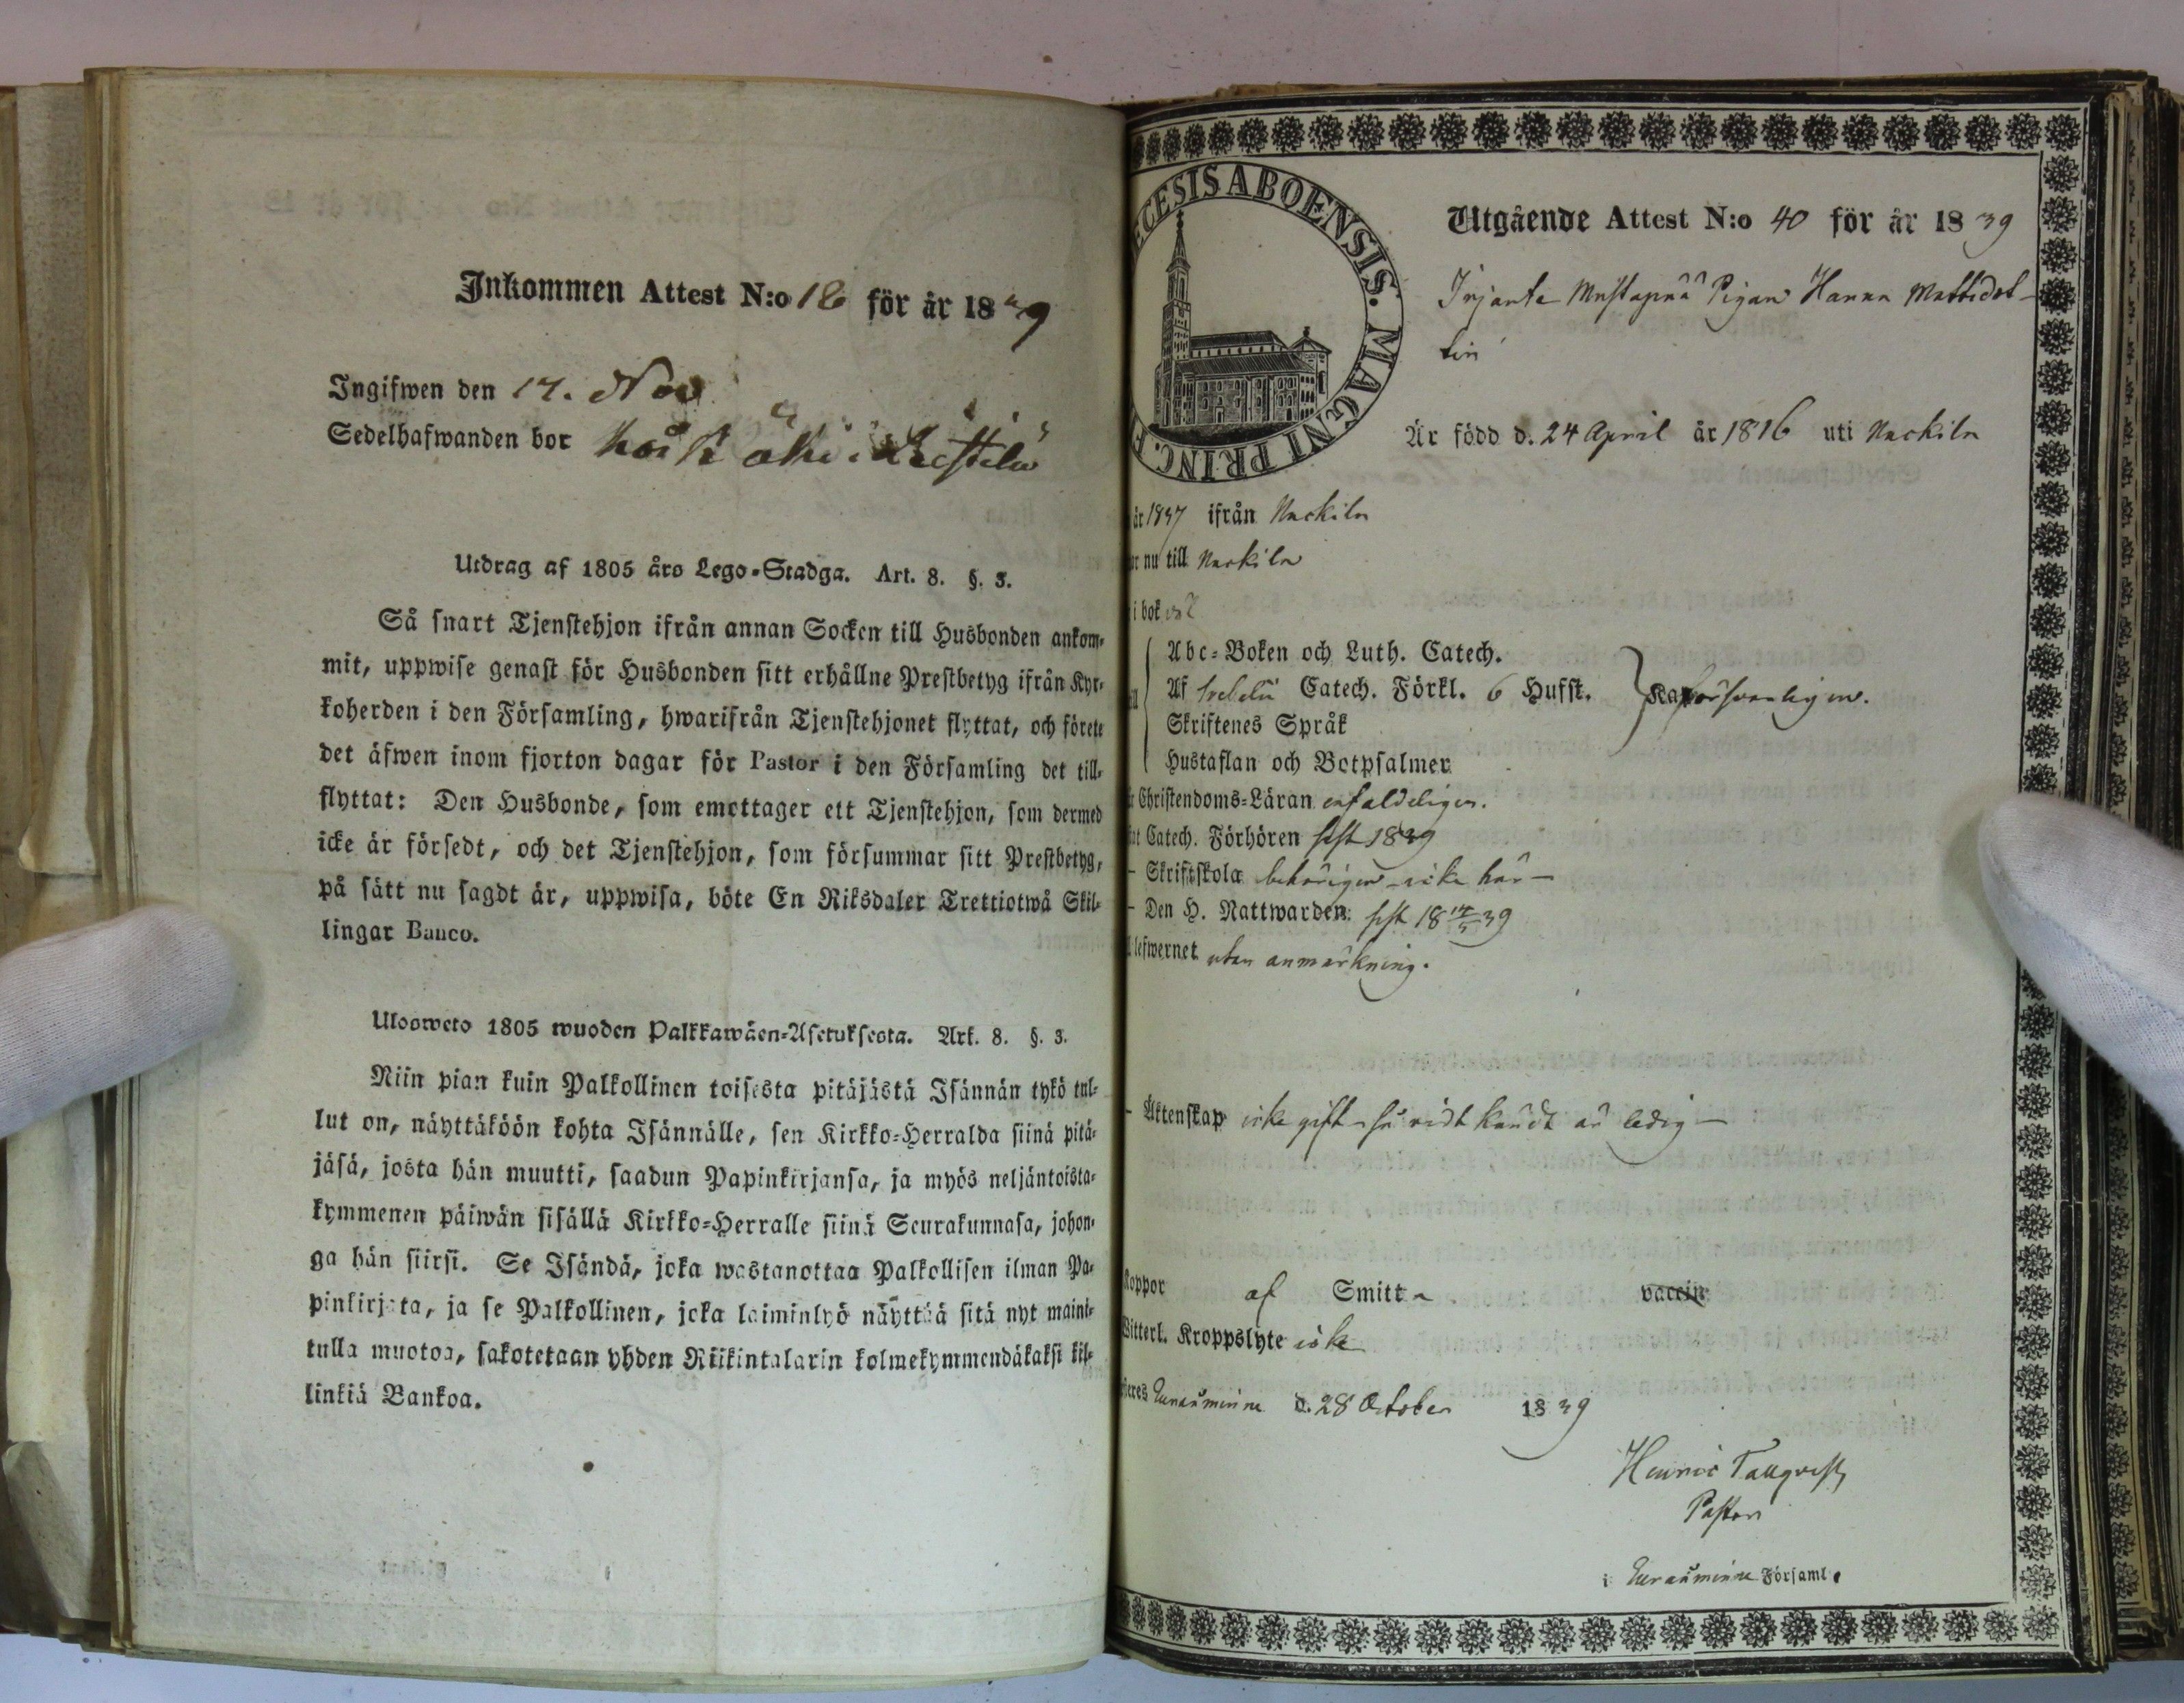 Inkommen Attest N:o 18 för år 1839
Ingifwen den 17. Nov
Sedelhafwanden bor
Utdrag af 1805 års Lego-Stadga. Art. 8. §. 3.
Så snart Tjenstehjon ifrån annan Socken till Husbonden ankom-
mit, uppwise genast för Husbonden sitt erhållne Prestbetyg ifrån Kyr-
koherden i den Församling, hwarifrån Tjenstehjonet flyttat, och förete
det äfwen inom fjorton dagar för Pastor i den Församling det till-
flyttat: Den Husbonde, som emottager ett Tjenstehjon, som dermed
icke är försedt, och det Tjenstehjon, som försummar sitt Prestbetyg,
på sätt nu sagdt är, uppwisa, böte En Riksdaler Trettiotwå Skil-
lingar Banco.
Ulosweto 1805 wuoden Palkkawäen-Asetuksesta. Art. 8. §. 3.
Niin pian kuin Palkollinen toisesta pitäjästä Isännän tykö tul-
lut on, näyttäköön kohta Isännälle, sen Kirkko-Herralda siinä pitä-
jäsä, josta hän muutti, saadun Papinkirjansa, ja myös neljäntoista-
kymmenen päiwän sisällä Kirkko-Herralle siinä Seurakunnasa, johon-
ga hän siirsi. Se Isändä, joka wastanottaa Palkollisen ilman Pa-
pinkirjata, ja se Palkollinen, joka laiminlyö näyttää sitä nyt maini-
tulla muotoa, sakotetaan yhden Riikintalarin kolmekymmendäkaksi kil-
linkiä Bankoa.
ECESIS ABOENSIS. MAGNI PRINC. F
Utgående Attest N:o 40 för år 1839
Pigan Hanna Mattsdot-
ter
Är född d. 24 April år 1816 uti Nackila
år 1837 ifrån Nackila
or nu till Nackila
i bok
Abc-Boken och Luth. Catech.
Af Svebelii Catech. Förkl. 6 Hufst.
Skriftenes Språk
Hustaflan och Botpsalmer
försvarligen.
Christendoms-Läran enfaldeligen.
Catech. Förhören sist 1839
Skriftskola behörigen icke här
Den H. Nattwarden sist 18 39
lefwernet utan anmärkning.
Äktenskap icke gift så vidt kändt är ledig
koppor af Smitt vaccin
Witterl. Kroppslyte icke
Euraåminne d. 28 October 1839
Henric Tallqvist
Pastor
i Euraåminne Församl.